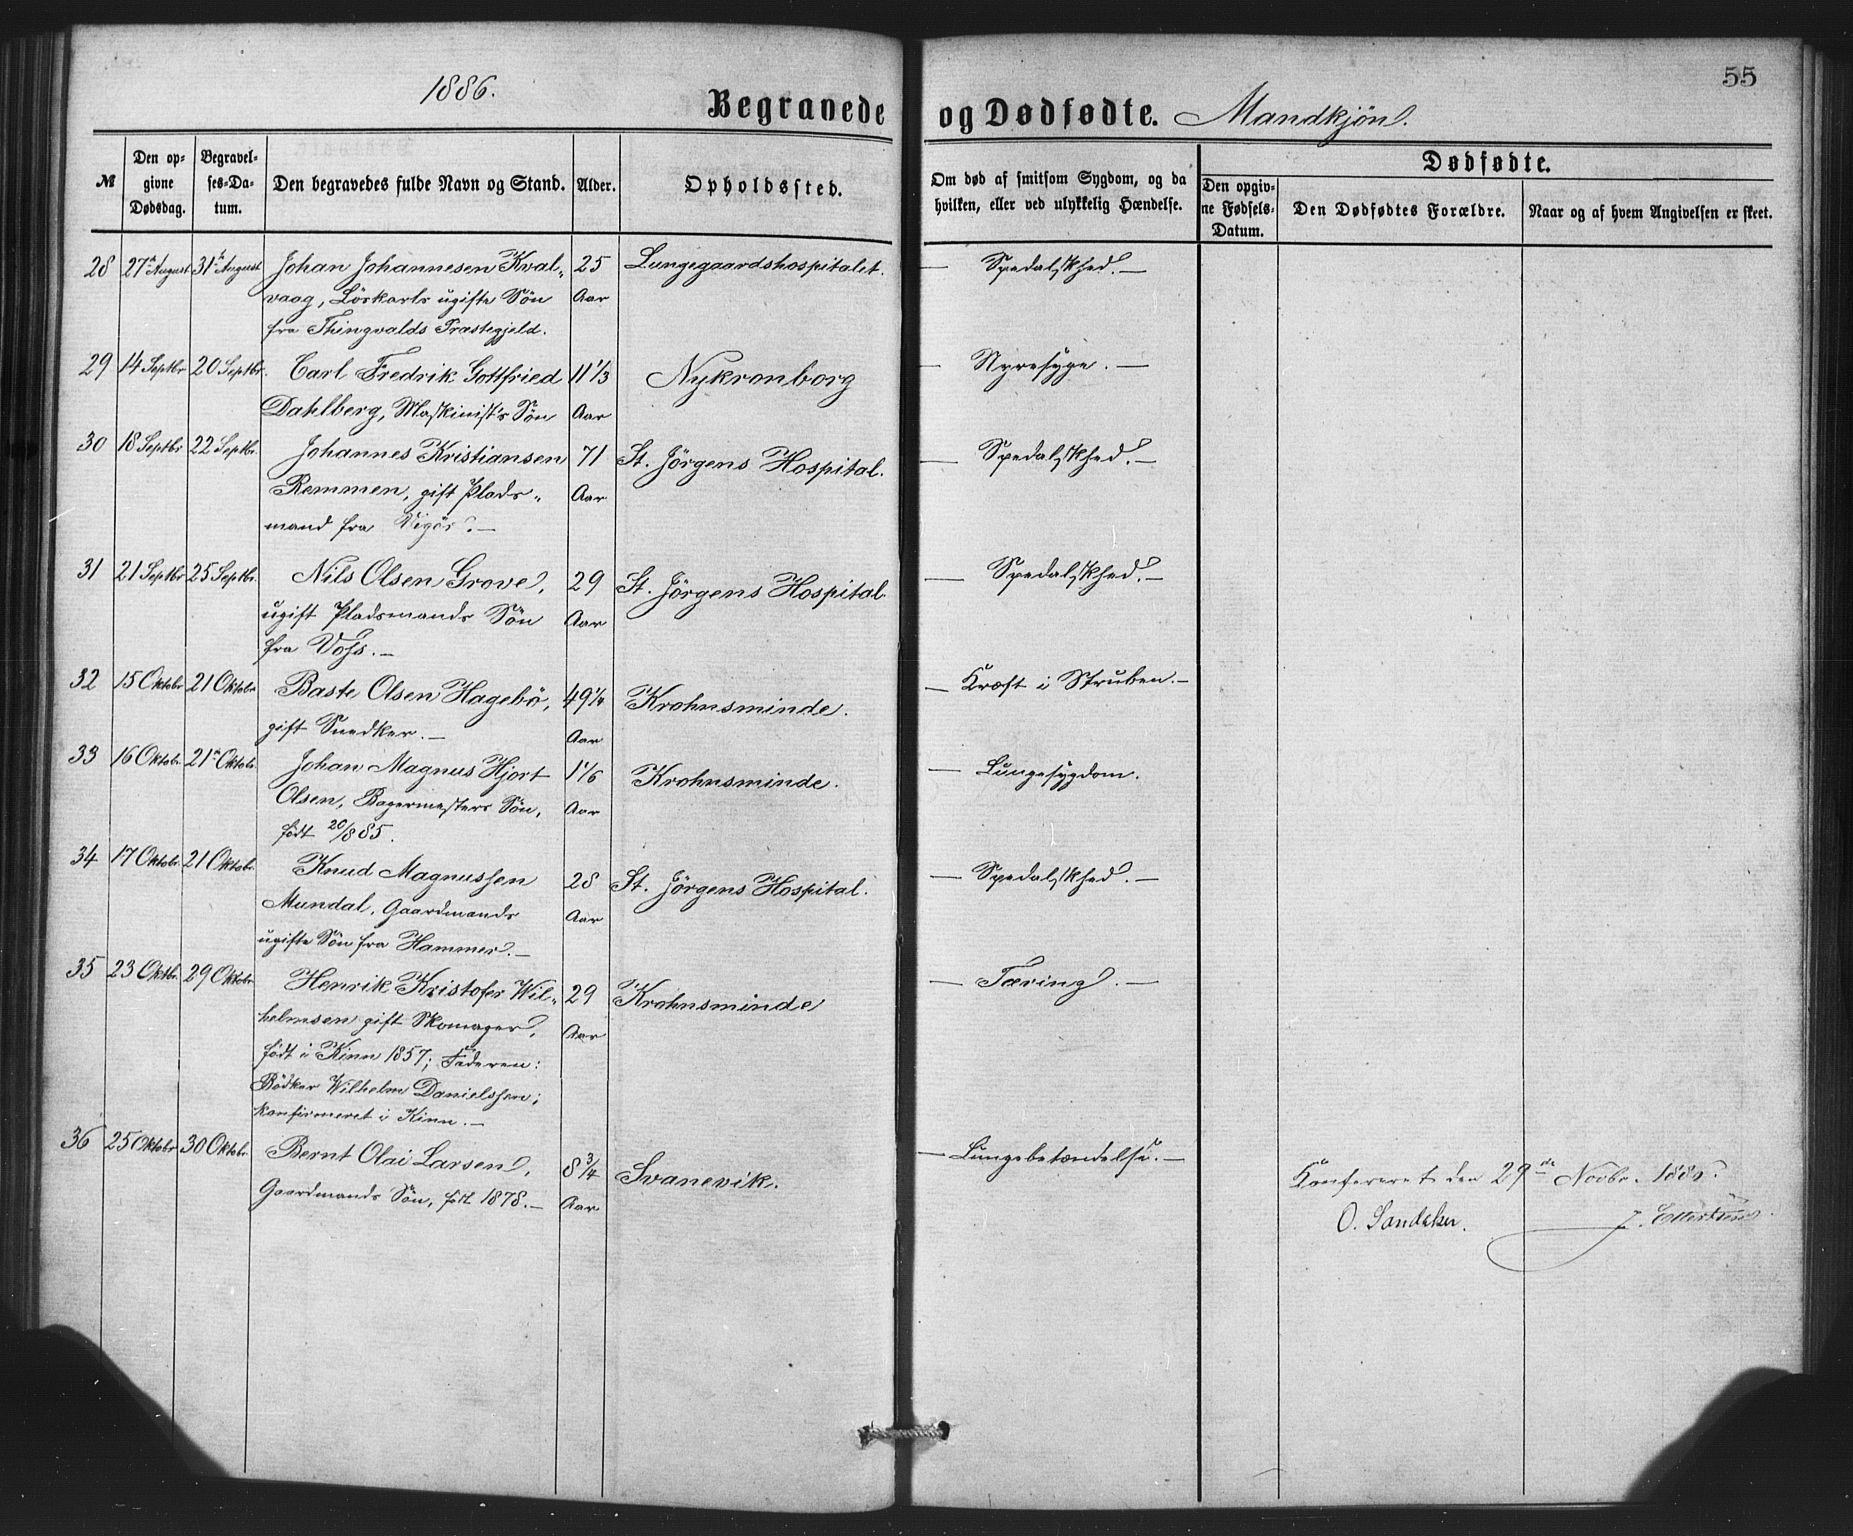 1886.
55
Begravede og Dødfødte. Mandkjön.
№
Den opgivne Dødsdag.
Begravelses-Datum.
Den begravedes fulde Navn og Stand.
Alder.
Opholdssted.
Om død af smitsom Sygdom, og da hvilken, eller ved ulykkelig Hændelse.
Dødfødte.
Den opgivne Fødsels-Datum.
Den Dødfødtes Forældre.
Naar og af hvem Angivelsen er skeet.
28 27 August 31 August Johan Johannesen Kval- 25 Lungegaardshospitalet. — Spedalskhed. —
vaag, Löskarls ugifte Sön Aar
fra Thingvalds Præstegjeld.
29 14 Septbr 20 Septbr. Carl Fredrik Gottfried 11 1/3 Nykronborg — Nyresyge. —
Dahlberg, Maskinist's Sön Aar
30 18 Septbr 22 Septbr. Johannes Kristiansen 71 St. Jörgens Hospital. — Spedalskhed. —
Remmen, gift Plads- Aar
mand fra
31 21 Septbr 25 Septbr. Nils Olsen Grove, 29 St. Jörgens Hospital — Spedalskhed. —
ugift Pladsmands Sön Aar
fra Voss. —
32 15 Oktobr 21 Oktobr Baste Olsen Hagebö, 49 1/4 Krohnsminde. — Kræft i Struben. —
gift Snedker. — Aar
33 16 Oktobr. 21 Oktobr. Johan Magnus Hjort 1 1/6 Krohnsminde. — Lungesygdom.
Olsen, Bagermesters Sön, Aar
födt 20/8 85.
34 17 Oktobr. 21 Oktobr. Knud Magnussen 28 St. Jörgens Hospital. — Spedalskhed. —
Mundal, Gaardmands Aar
ugifte Sön fra Hammer. —
35 23 Oktbr. 29 Oktobr. Henrik Kristofer Wil- 29 Krohnsminde — Tæring. —
helmsen gift Skomager, Aar
födt i Kinn 1857; Faderen:
Bödker Wilhelm Danielssen;
konfirmeret i Kinn. —
36 25 Oktobr 30 Oktobr. Bernt Olai Larsen, 8 3/4 Svanevik. — Lungebetændelse. —
Gaardmands Sön, födt 1878. — Aar
Konfereret den 29de Novbr. 1886.
O. Sandaker. J.